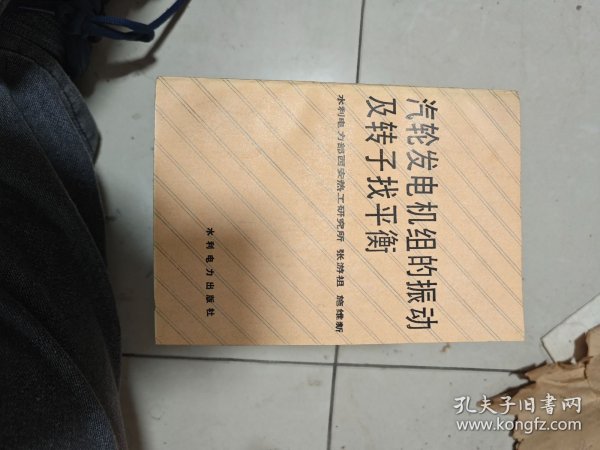 汽轮发电机组的振动
及转子找平衡
水利电力部西安热工研究所 张游祖 施维新
水利电力出版社
孔夫子旧书网
www.kongfz.com